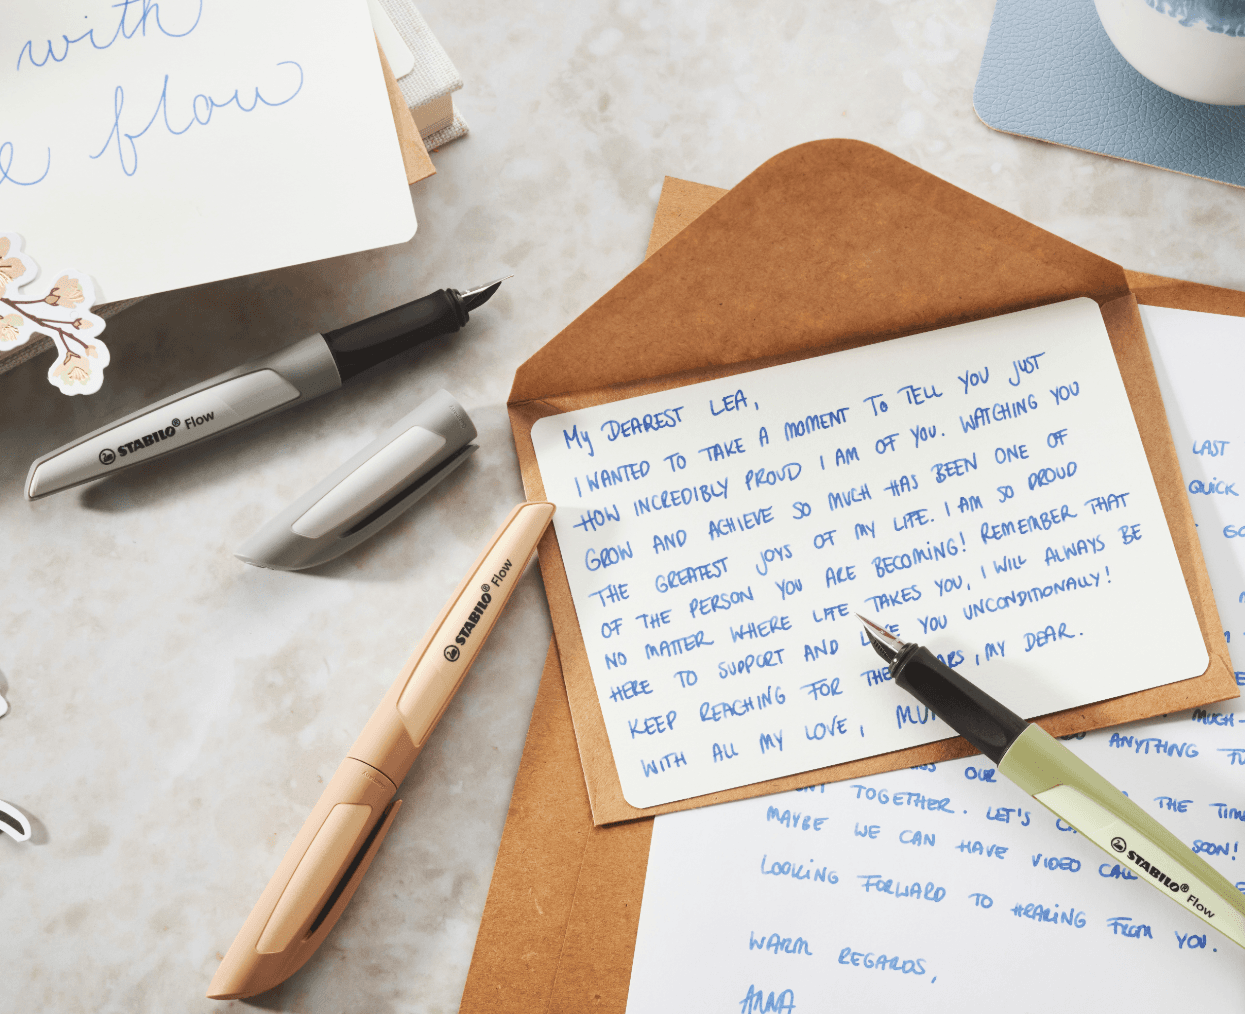 with
flow
STABILO® Flow
STABILO® Flow
My DEAREST LEA,
I WANTED TO TAKE A MOMENT TO TELL YOU JUST
HOW INCREDIBLY PROUD I AM OF YOU. WATCHING YOU
GROW AND ACHIEVE SO MUCH HAS BEEN ONE OF
THE GREATEST JOYS OF MY LIFE. I AM SO PROUD
OF THE PERSON YOU ARE BECOMING! REMEMBER THAT
NO MATTER WHERE LIFE TAKES YOU, I WILL ALWAYS BE
HERE TO SUPPORT AND YOU UNCONDITIONALLY!
KEEP REACHING FOR , MY DEAR.
WITH ALL MY LOVE,
LAST
QUICK
MUCH
ANYTHING
OUR THE
TOGETHER. LET'S SOON!
MAYBE WE CAN HAVE VIDEO
LOOKING FORWARD TO HEARING FROM YOU.
WARM REGARDS,
ANNA
STABILO® Flow